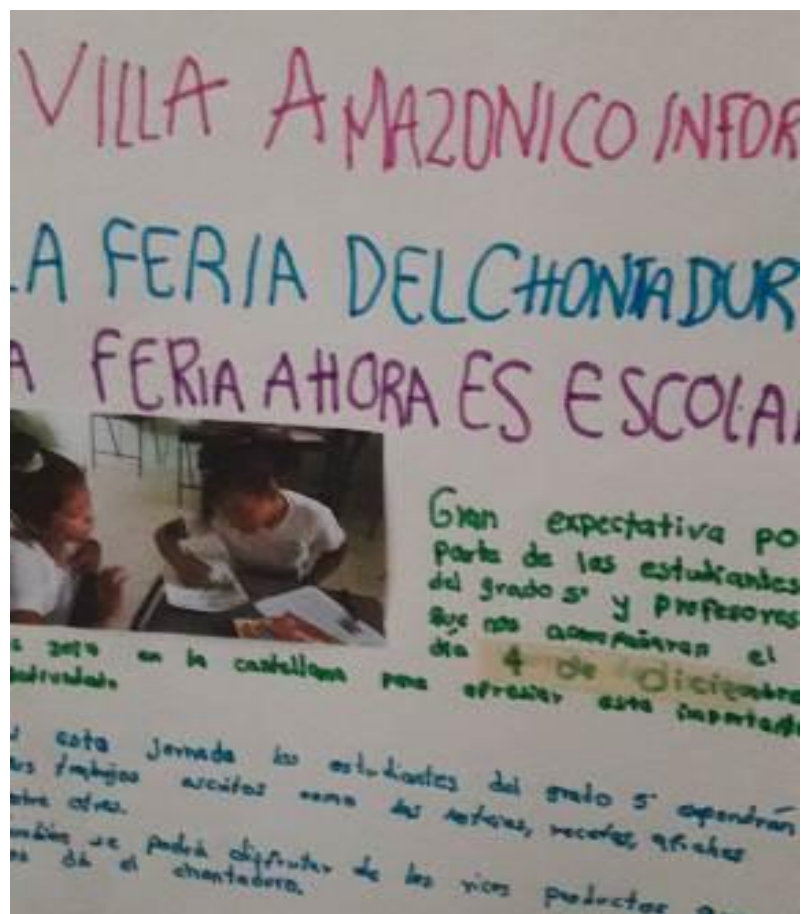 VILLA AMAZONICO INFOR
LA FERIA DEL CHONTADUR
A FERIA AHORA ES ESCOLA
Gran expectativa po
parte de los estudiantes
del grado 5° y profesores
que nos acompañaran el
día 4 de diciembre
2019 en la castellana para apreciar este importante
esta jornada los estudiantes del grado 5° expondrán
trabajos escritos como las noticias, recetas, afiches
otros.
se podrá disfrutar de los ricos productos
da el chontaduro.